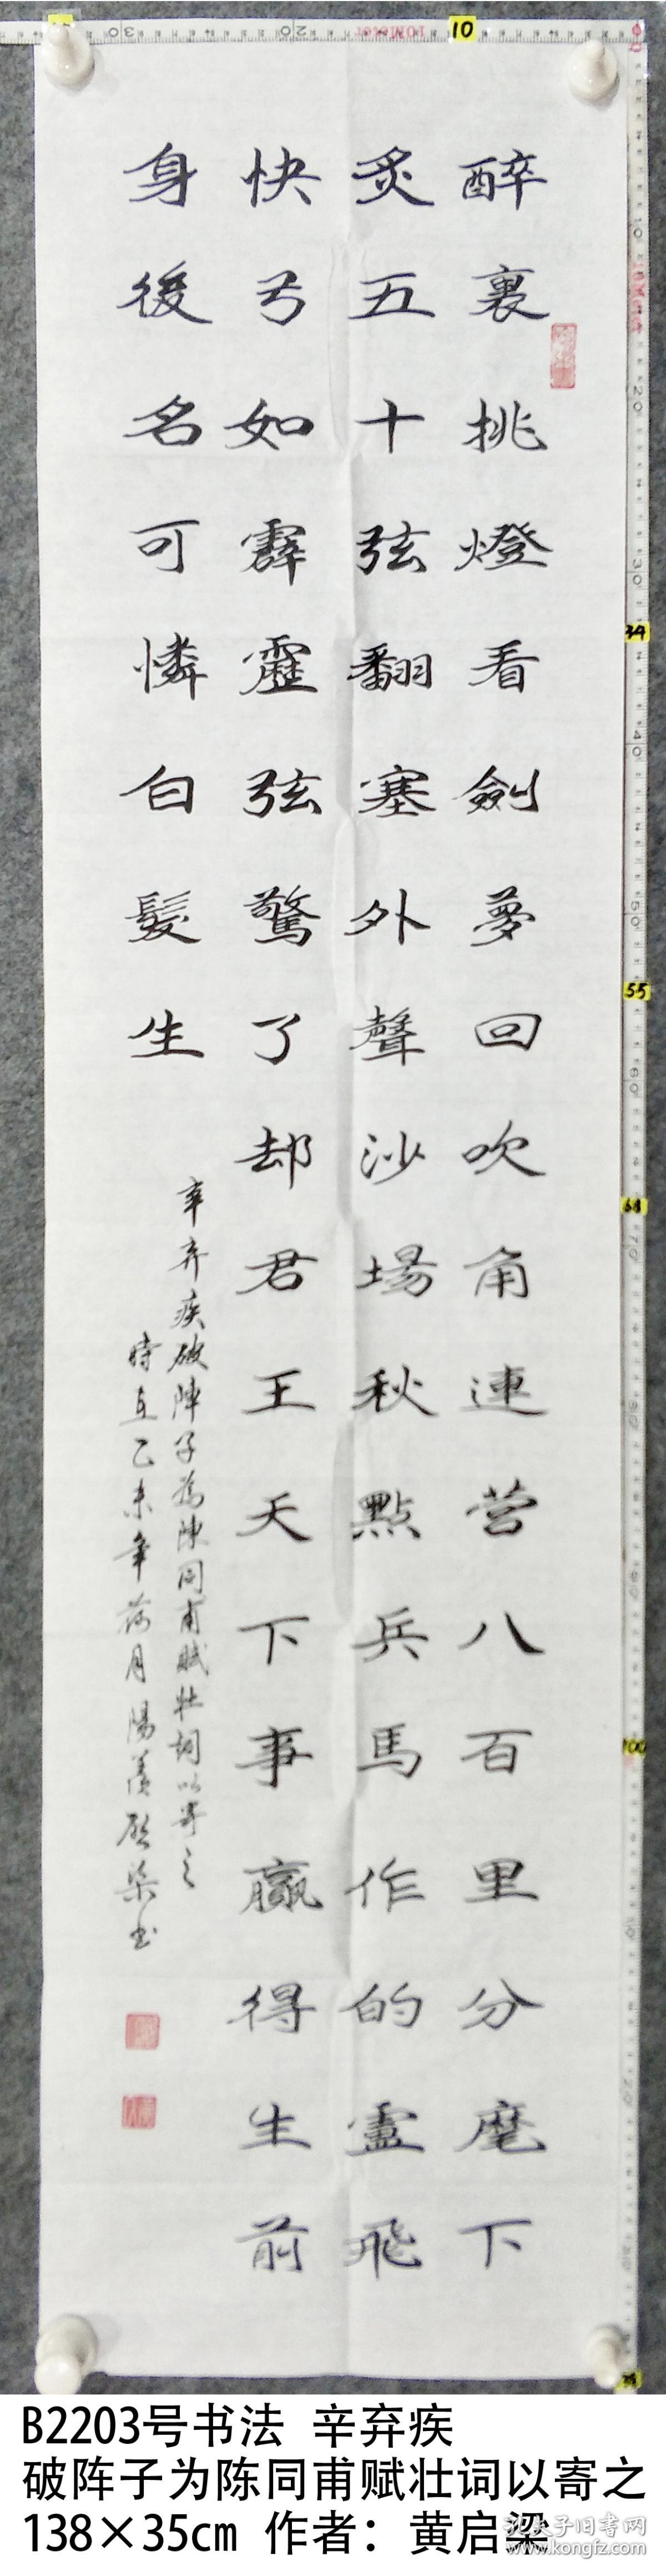 醉裏挑燈看劍夢回吹角連营八百里分麾下
炙五十弦翻塞外聲沙場秋點兵馬作的盧飛
快弓如霹靂弦驚了却君王天下事贏得生前
身後名可憐白髮生
辛弃疾破陣子為陳同甫賦壮詞以寄之
時在乙未年荷月陽羨啟梁书
B2203号书法 辛弃疾
破阵子为陈同甫赋壮词以寄之
138×35cm 作者：黄启梁
孔夫子旧书网
www.kongfz.com